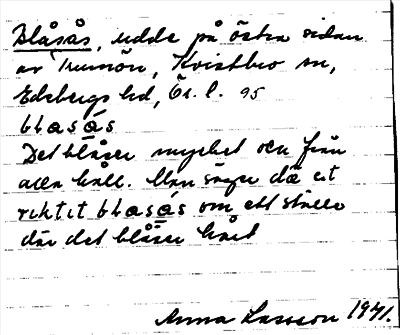 Blåsås, udde på östra sidan
av Trumön, Kvistbro sn,
Edsbergs hd, Ör. l. 95
blasås
Det blåser mycket och från
alla håll. Man säger dä et
riktit blasås om ett ställe
där det blåser hårt
Anna Larsson 1971.